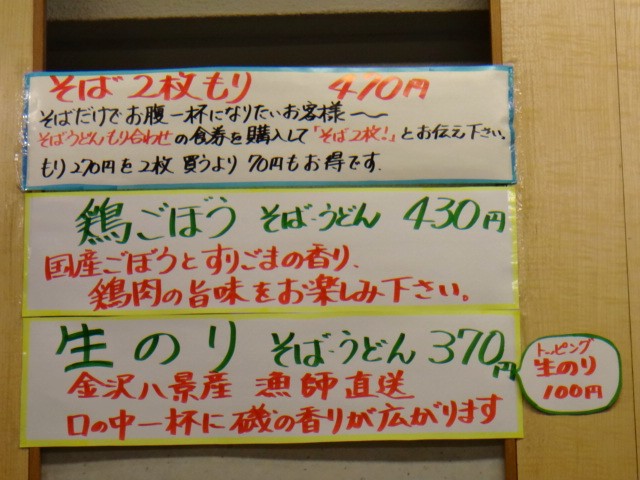 そば2枚もり 470円
そばだけでお腹一杯になりたいお客様〜
そばうどんもり合わせの食券を購入して「そば2枚!」とお伝え下さい。
もり270円を2枚買うより70円もお得です.
鶏ごぼう そば・うどん 430円
国産ごぼうとすりごまの香り、
鶏肉の旨味をお楽しみ下さい。
生のり そば・うどん 370円
金沢八景産 漁師直送
口の中一杯に磯の香りが広がります
トッピング
生のり
100円